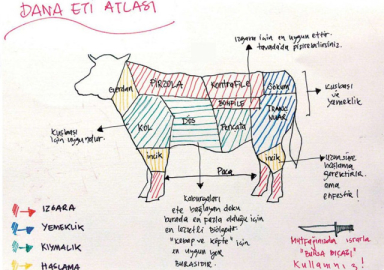 DANA ETİ ATLASI
ızgara için en uygun ettir.
tavada'da pişirebilirsiniz.
Gerdan
PİRZOLA
KontraFİLE
BONFİLE
Sokum
TRANÇ
NUAR
KOL
DÖŞ
Pençata
incik
incik
Kuşbaşı
için uygundur.
Kuşbaşı
ve
yemeklik
Paça
Uzun süre
haşlama
gerektirir.
ama
enfestir!
Kaburgaları
ete bağlayan doku
burada en fazla olduğu için
en lezzetli bölgedir.
"Kebap ve köfte" için
en uygun yer
BURASIDIR.
IZGARA
YEMEKLİK
KIYMALIK
HAŞLAMA
Mutfağınızda ısrarla
"BURSA BIÇAĞI"
Kullanınız!